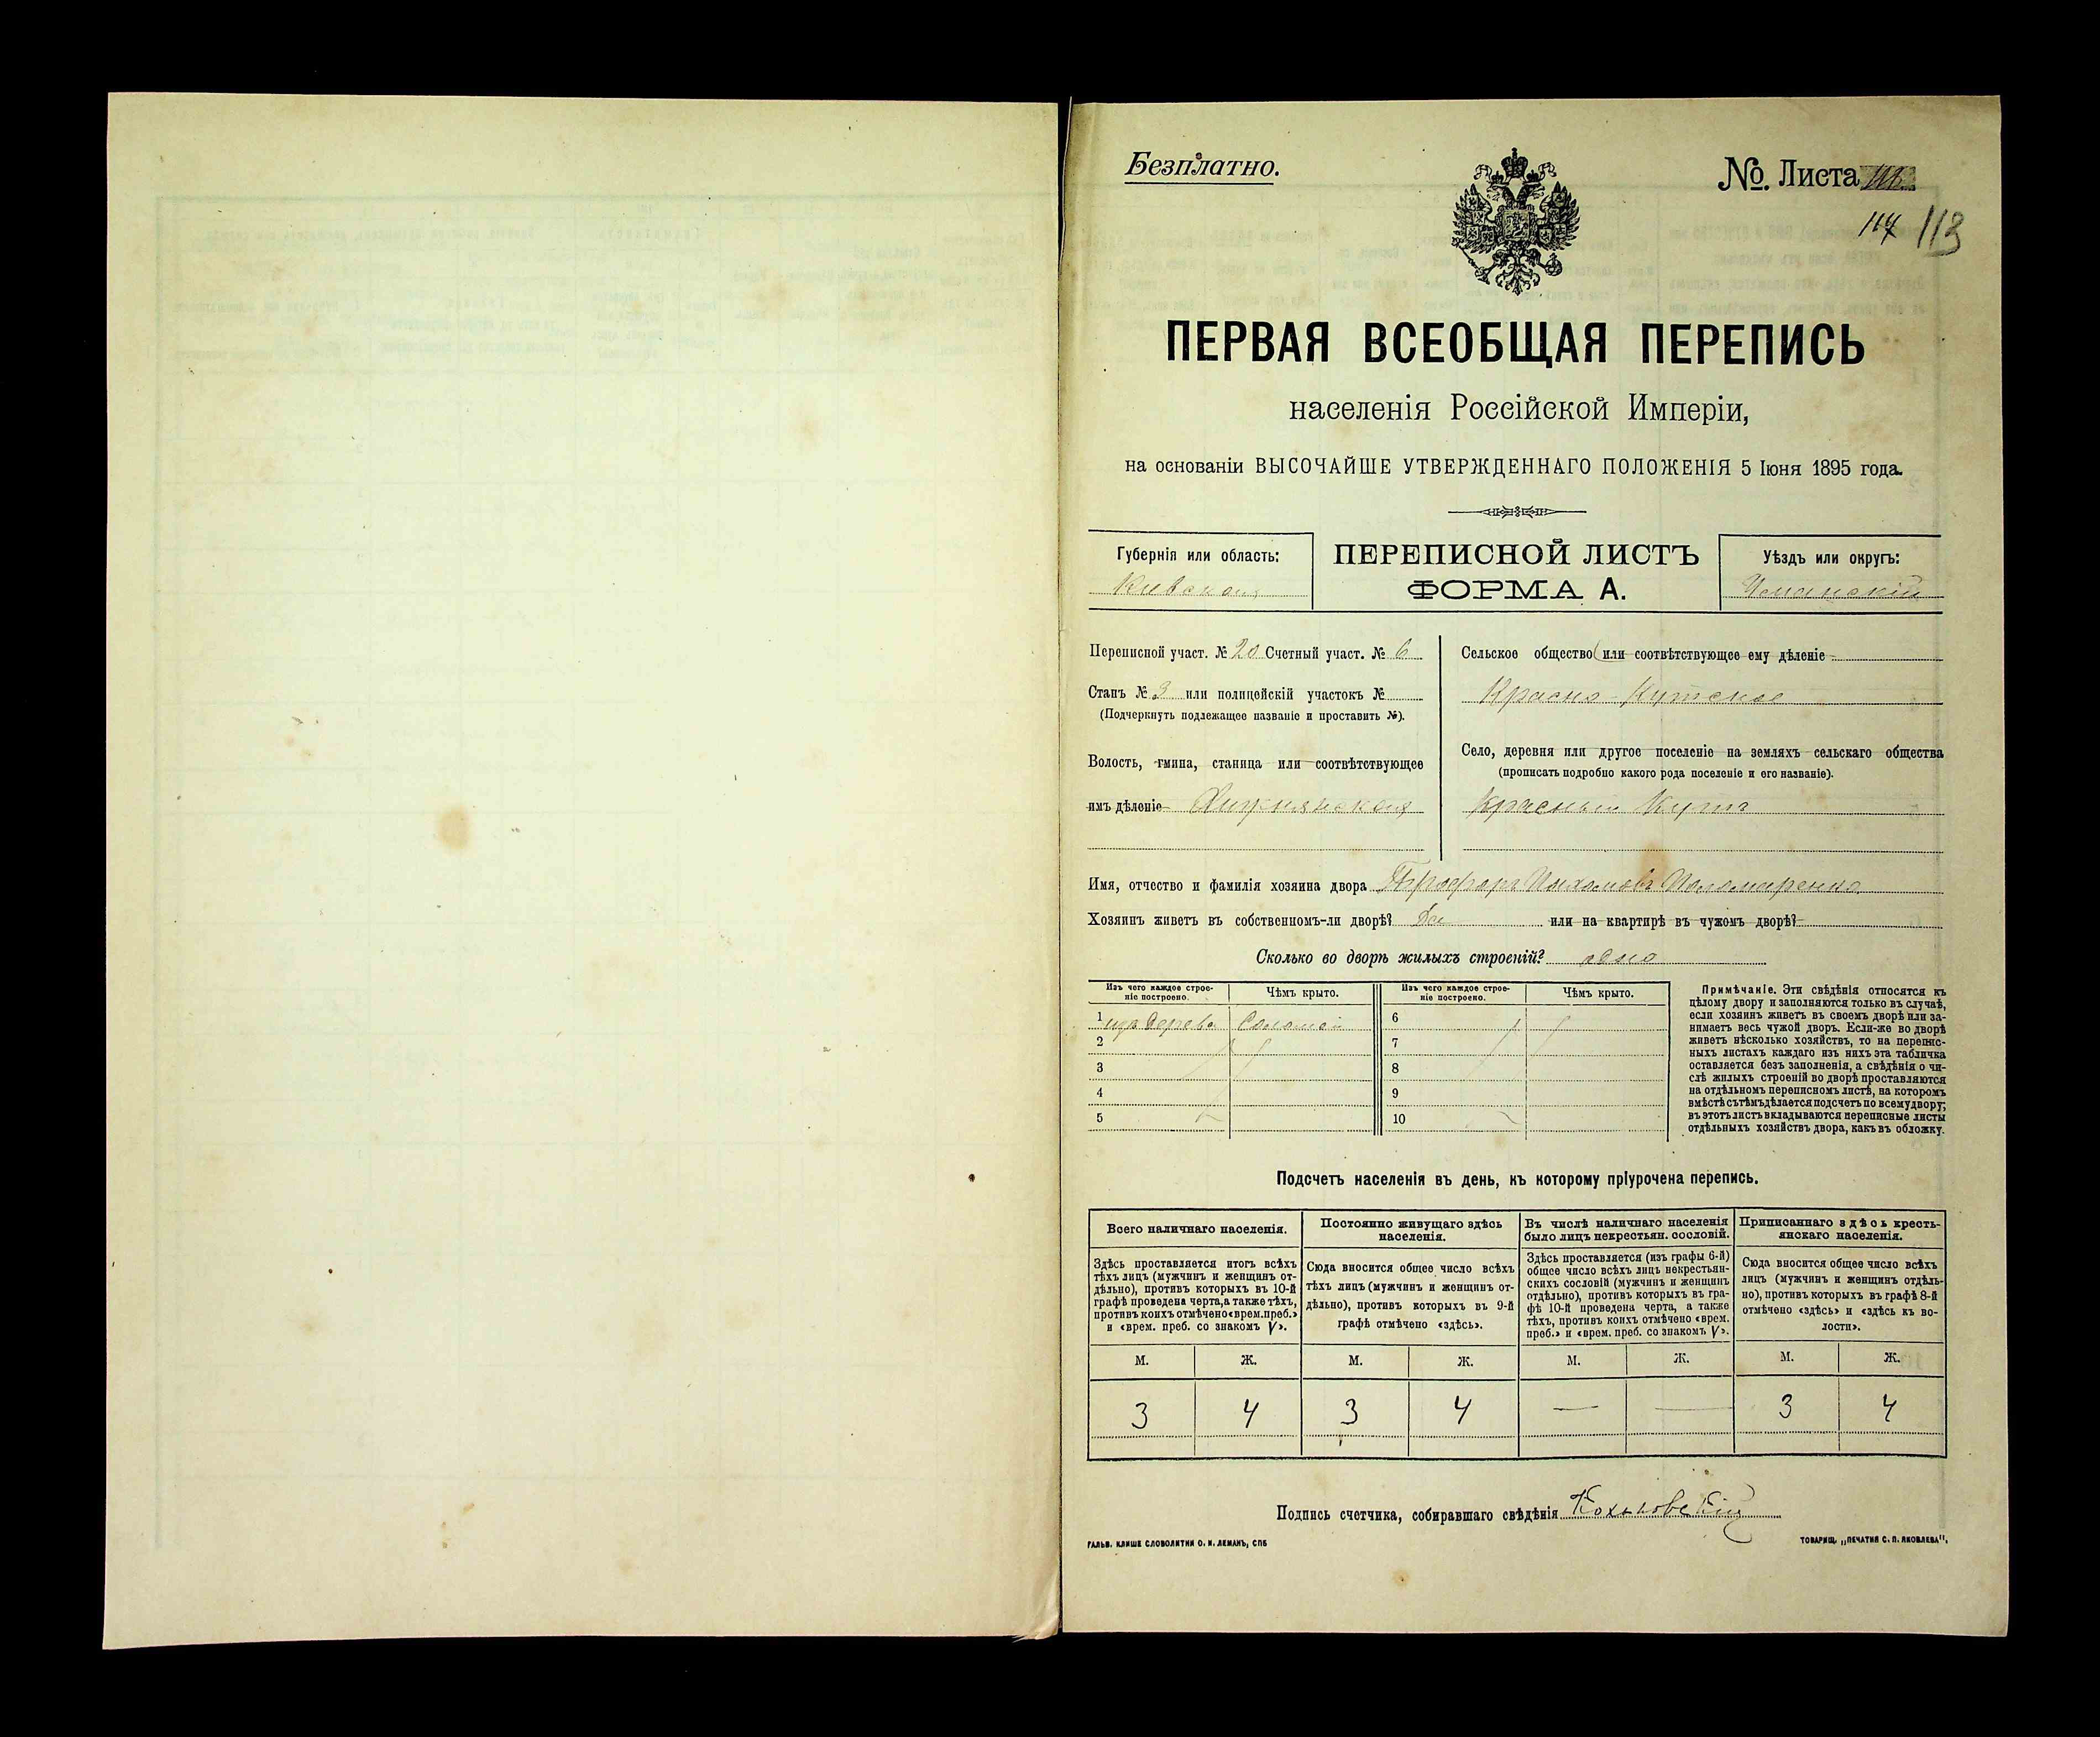 Безплатно.
№. Листа
114 113
ПЕРВАЯ ВСЕОБЩАЯ ПЕРЕПИСЬ
населенія Россійской Имперіи,
на основаніи ВЫСОЧАЙШЕ УТВЕРЖДЕННАГО ПОЛОЖЕНІЯ 5 Іюня 1895 года.
Губернія или область:
Кіевская
ПЕРЕПИСНОЙ ЛИСТЪ
ФОРМА А.
Уѣздъ или округъ:
Уманскій
Переписной участ. № 20 Счетный участ. № 6
Станъ № 3 или полицейскій участокъ №
(Подчеркнуть подлежащее названіе и проставить №).
Волость, гмина, станица или соотвѣтствующее
имъ дѣленіе Хижнянская
Сельское общество (или соотвѣтствующее ему дѣленіе
Красно-Кутское
Село, деревня или другое поселеніе на земляхъ сельскаго общества
(прописать подробно какого рода поселеніе и его названіе).
Красный Кутъ
Имя, отчество и фамилія хозяина двора Пономаренко
Хозяинъ живетъ въ собственномъ-ли дворѣ? Да или на квартирѣ въ чужомъ дворѣ?
Сколько во дворѣ жилыхъ строеній? одно
Изъ чего каждое строе-
ніе построено.
Чѣмъ крыто.
1 изъ дерева Соломой
2
3
4
5
Изъ чего каждое строе-
ніе построено.
Чѣмъ крыто.
6
7
8
9
10
Примѣчаніе. Эти свѣдѣнія относятся къ
цѣлому двору и заполняются только въ случаѣ,
если хозяинъ живетъ въ своемъ дворѣ или за-
нимаетъ весь чужой дворъ. Если-же во дворѣ
живетъ нѣсколько хозяйствъ, то на перепис-
ныхъ листахъ каждаго изъ нихъ эта табличка
оставляется безъ заполненія, а свѣдѣнія о чи-
слѣ жилыхъ строеній во дворѣ проставляются
на отдѣльномъ переписномъ листѣ, на которомъ
вмѣстѣ съ тѣмъ дѣлается подсчетъ по всему двору;
въ этотъ листъ вкладываются переписные листы
отдѣльныхъ хозяйствъ двора, какъ въ обложку.
Подсчетъ населенія въ день, къ которому пріурочена перепись.
Всего наличнаго населенія.
Здѣсь проставляется итогъ всѣхъ
тѣхъ лицъ (мужчинъ и женщинъ от-
дѣльно), противъ которыхъ въ 10-й
графѣ проведена черта, а также тѣхъ,
противъ коихъ отмѣчено «врем. преб.»
и «врем. преб. со знакомъ V».
Постоянно живущаго здѣсь
населенія.
Сюда вносится общее число всѣхъ
тѣхъ лицъ (мужчинъ и женщинъ от-
дѣльно), противъ которыхъ въ 9-й
графѣ отмѣчено «здѣсь».
Въ числѣ наличнаго населенія
было лицъ некрестьян. сословій.
Здѣсь проставляется (изъ графы 6-й)
общее число всѣхъ лицъ некрестьян-
скихъ сословій (мужчинъ и женщинъ
отдѣльно), противъ которыхъ въ гра-
фѣ 10-й проведена черта, а также
тѣхъ, противъ коихъ отмѣчено «врем.
преб.» и «врем. преб. со знакомъ V».
Приписаннаго здѣсь кресть-
янскаго населенія.
Сюда вносится общее число всѣхъ
лицъ (мужчинъ и женщинъ отдѣль-
но), противъ которыхъ въ графѣ 8-й
отмѣчено «здѣсь» и «здѣсь къ во-
лости».
М. Ж. М. Ж. М. Ж. М. Ж.
3 4 3 4 — — 3 4
Подпись счетчика, собиравшаго свѣдѣнія
ГАЛЬВ. КЛИШЕ СЛОВОЛИТНИ О. И. ЛЕМАНЪ, СПБ
ТОВАРИЩ. „ПЕЧАТНЯ С. П. ЯКОВЛЕВА".